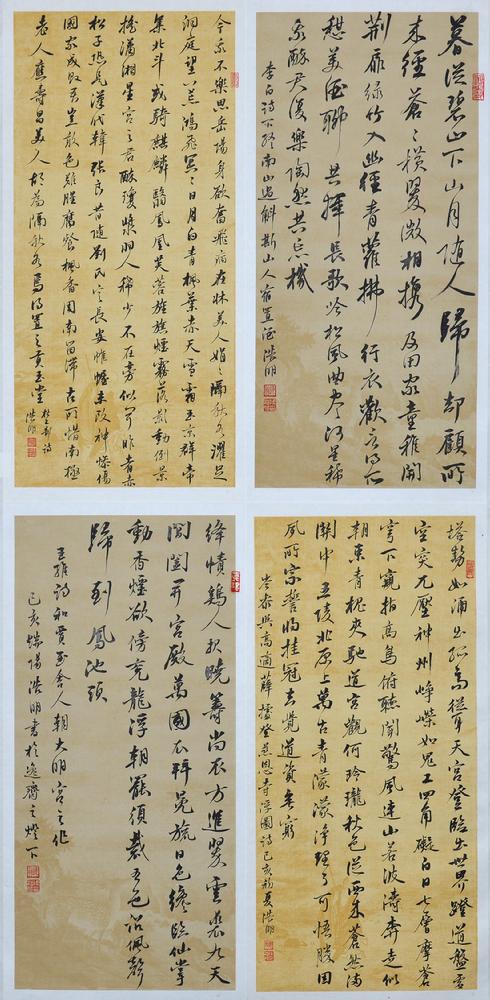 暮從碧山下山月隨人歸却顧所
來徑蒼〻橫翠微相攜及田家童稚開
荆扉綠竹入幽徑青蘿拂行衣歡言得所
憇美酒聊共揮長歌吟松風曲盡河星稀
我醉君復樂陶然共忘機
李白詩下終南山過斛斯山人宿置酒 浩明
今我不樂思岳陽身欲奮飛病在牀美人娟〻隔秋水濯足
洞庭望八荒鴻飛冥〻日月白青楓葉赤天雨霜玉京群帝
集北斗或騎麒麟翳鳳凰芙蓉旌旗煙霧落影動倒景
搖瀟湘星宮之君醉瓊漿羽人稀少不在旁似聞昨者赤
松子恐是漢代韓張良昔隨劉氏定長安帷幄未改神慘傷
國家成敗吾豈敢色難腥腐餐楓香周南留滯古所惜南極
老人應壽昌美人胡為隔秋水焉得置之貢玉堂
杜甫詩 浩明
塔勢如涌出孤高聳天宮登臨出世界蹬道盤虛
空突兀壓神州崢嶸如鬼工四角礙白日七層摩蒼
穹下窺指高鳥俯聽聞驚風連山若波濤奔走似
朝東青槐夾馳道宮觀何玲瓏秋色從西來蒼然滿
關中五陵北原上萬古青濛濛淨理了可悟勝因
夙所宗誓將挂冠去覺道資無窮
岑參與高適薛據登慈恩寺浮圖詩己亥初夏浩明
絳幘鷄人報曉籌尚衣方進翠雲裘九天
閶闔開宮殿萬國衣冠拜冕旒日色纔臨仙掌
動香煙欲傍袞龍浮朝罷須裁五色詔佩聲
歸到鳳池頭
王維詩和賈至舍人朝大明宮之作
己亥端陽浩明書於逸齋之燈下